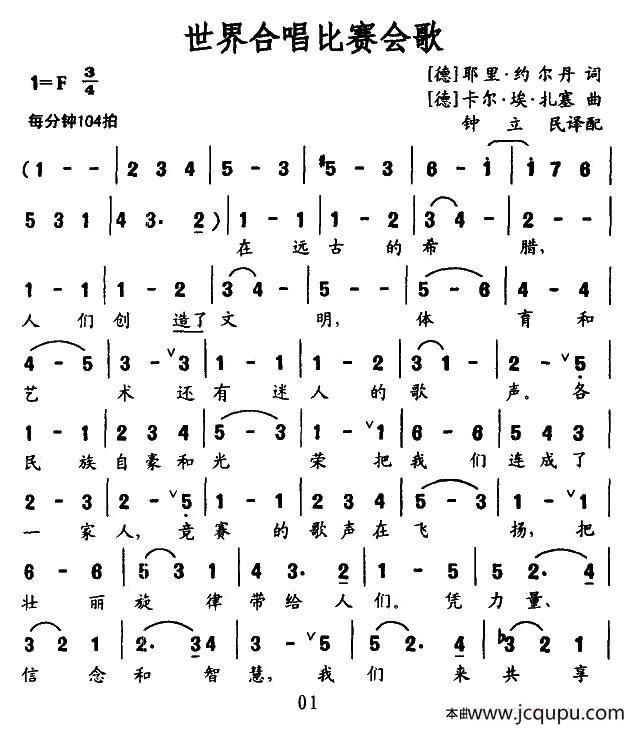 世界合唱比赛会歌
1=F 3/4
[德]耶里·约尔丹 词
[德]卡尔·埃·扎塞 曲
每分钟104拍
钟立民译配
(1 - - | 2 3 4 | 5 - 3 | #5 - 3 | 6 - i | i 7 6 |
5 3 1 | 4 3. 2) | 1 - 1 | 1 - 2 | 3 4 - | 2 - - |
在远古的希腊,
1 - 1 | 1 - 2 | 3 4 - | 5 - 6 | 4 - 4 |
人们创造了文明,体育和
4 - 5 | 3 - ∨3 | 1 - 1 | 1 - 2 | 3 1 - | 2 - ∨5 |
艺术还有迷人的歌声。各
1 - 1 | 2 3 4 | 5 - 3 | 1 - ∨1 | 6 - 6 | 5 4 3 |
民族自豪和光荣把我们连成了
2 - 3 | 2 - ∨5 | 1 - 1 | 2 3 4 | 5 - 3 | 1 - ∨1 |
一家人,竞赛的歌声在飞扬,把
6 - 6 | 5 3 1 | 3 3. 2 | 4 - 5 | 5 2. 4 |
壮丽旋律带给人们。凭力量、
3 2 1 | 2. 3 4 | 3 - ∨5 | 5 2. 4 | b3 2 1 |
信念和智慧,我们来共享
01
本曲www.jcqupu.com